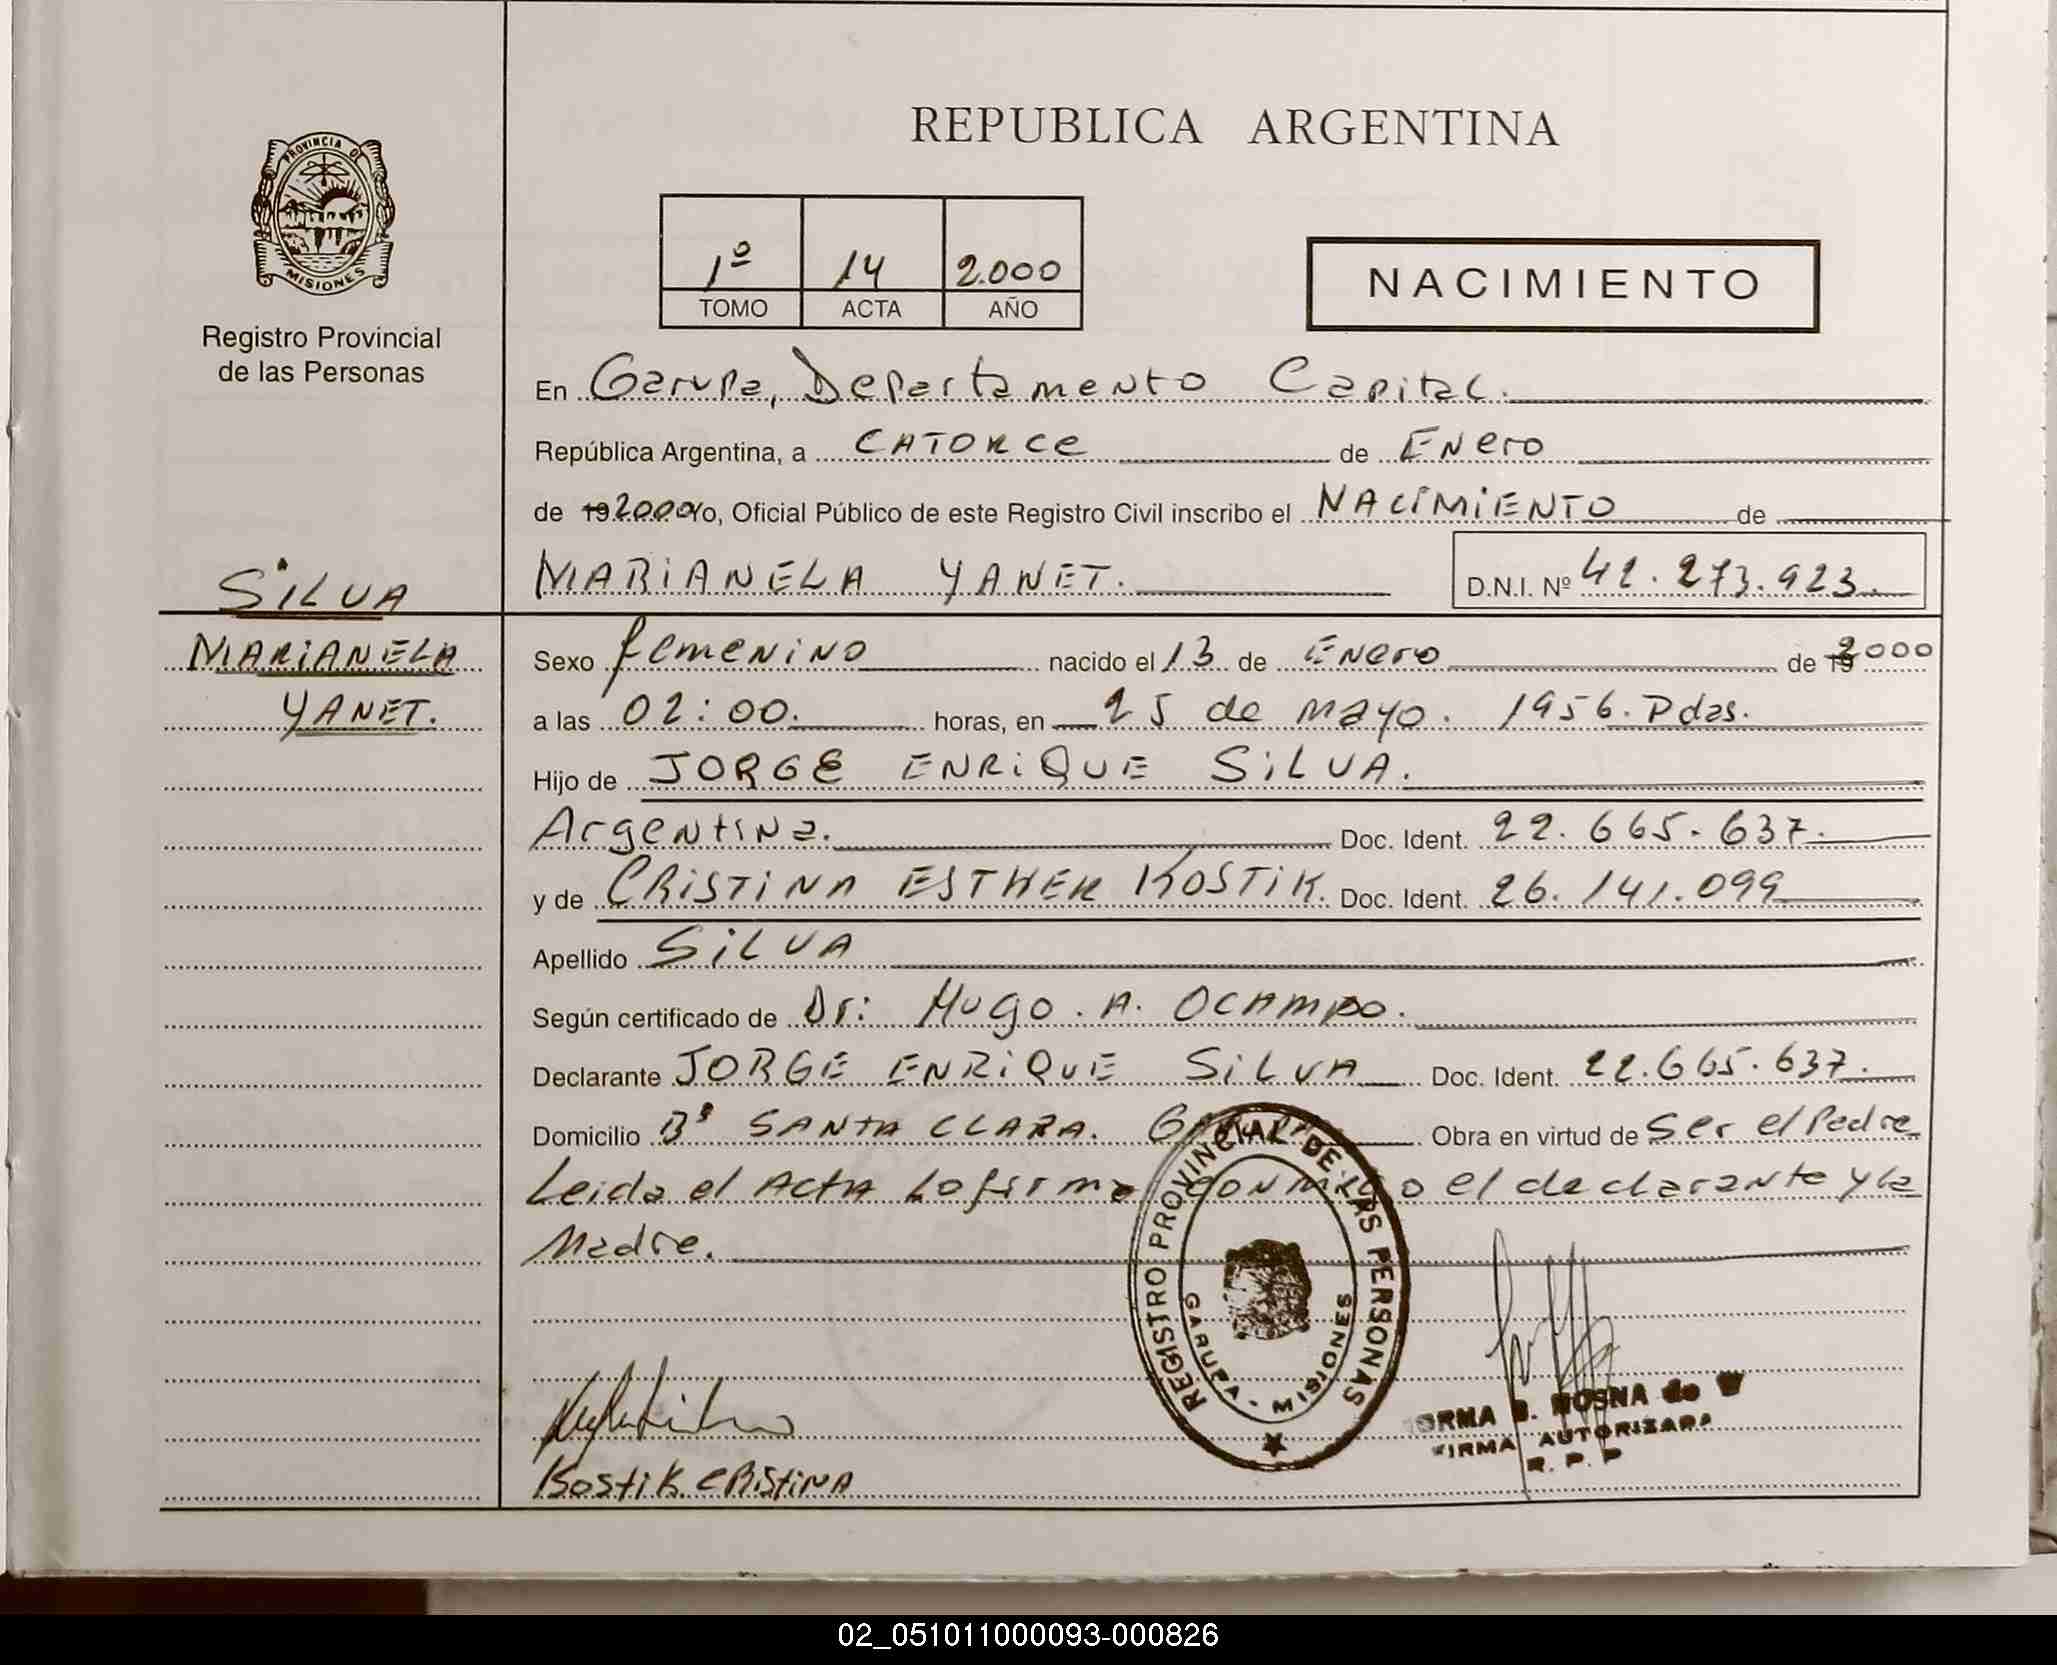 REPUBLICA ARGENTINA
PROVINCIA DE
MISIONES
Registro Provincial
de las Personas
1º 14 2.000
TOMO ACTA AÑO
NACIMIENTO
En Garupa, Departamento Capital.
República Argentina, a CATORCE de Enero
de 19 2000 Yo, Oficial Público de este Registro Civil inscribo el NACIMIENTO de
MARIANELA YANET. D.N.I. Nº 42.273.923.
SILVA
MARIANELA
YANET.
Sexo femenino nacido el 13 de Enero de 19 2000
a las 02:00. horas, en 25 de mayo. 1956. Pdas.
Hijo de JORGE ENRIQUE SILVA.
Argentina. Doc. Ident. 22.665.637.
y de CRISTINA ESTHER KOSTIK. Doc. Ident. 26.141.099
Apellido SILVA
Según certificado de Dr: Hugo. A. OCAMPO.
Declarante JORGE ENRIQUE SILVA Doc. Ident. 22.665.637.
Domicilio Bº SANTA CLARA. GARUPA Obra en virtud de Ser el Padre
Leida el Acta La firma conmigo el declarante y la
Madre.
REGISTRO PROVINCIAL DE LAS PERSONAS
GARUPA - MISIONES
NORMA B. MOSNA de
FIRMA AUTORIZADA
R. P. P
KOSTIK CRISTINA
02_051011000093-000826